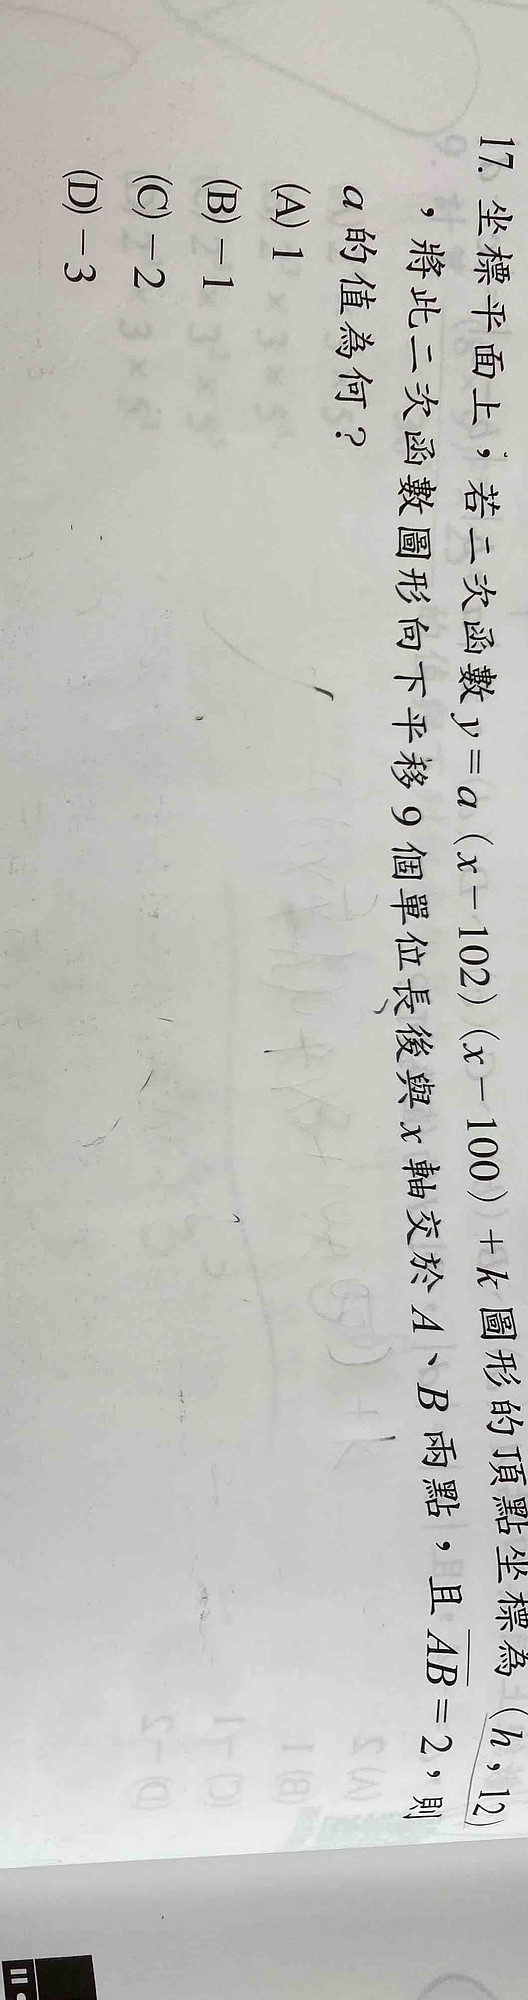 17. 坐標平面上，若二次函數 y＝a（x－102）（x－100）＋k 圖形的頂點坐標為（h，12）
，將此二次函數圖形向下平移 9 個單位長後與 x 軸交於 A、B 兩點，且 AB＝2，則
a 的值為何？
(A) 1
(B) －1
(C) －2
(D) －3